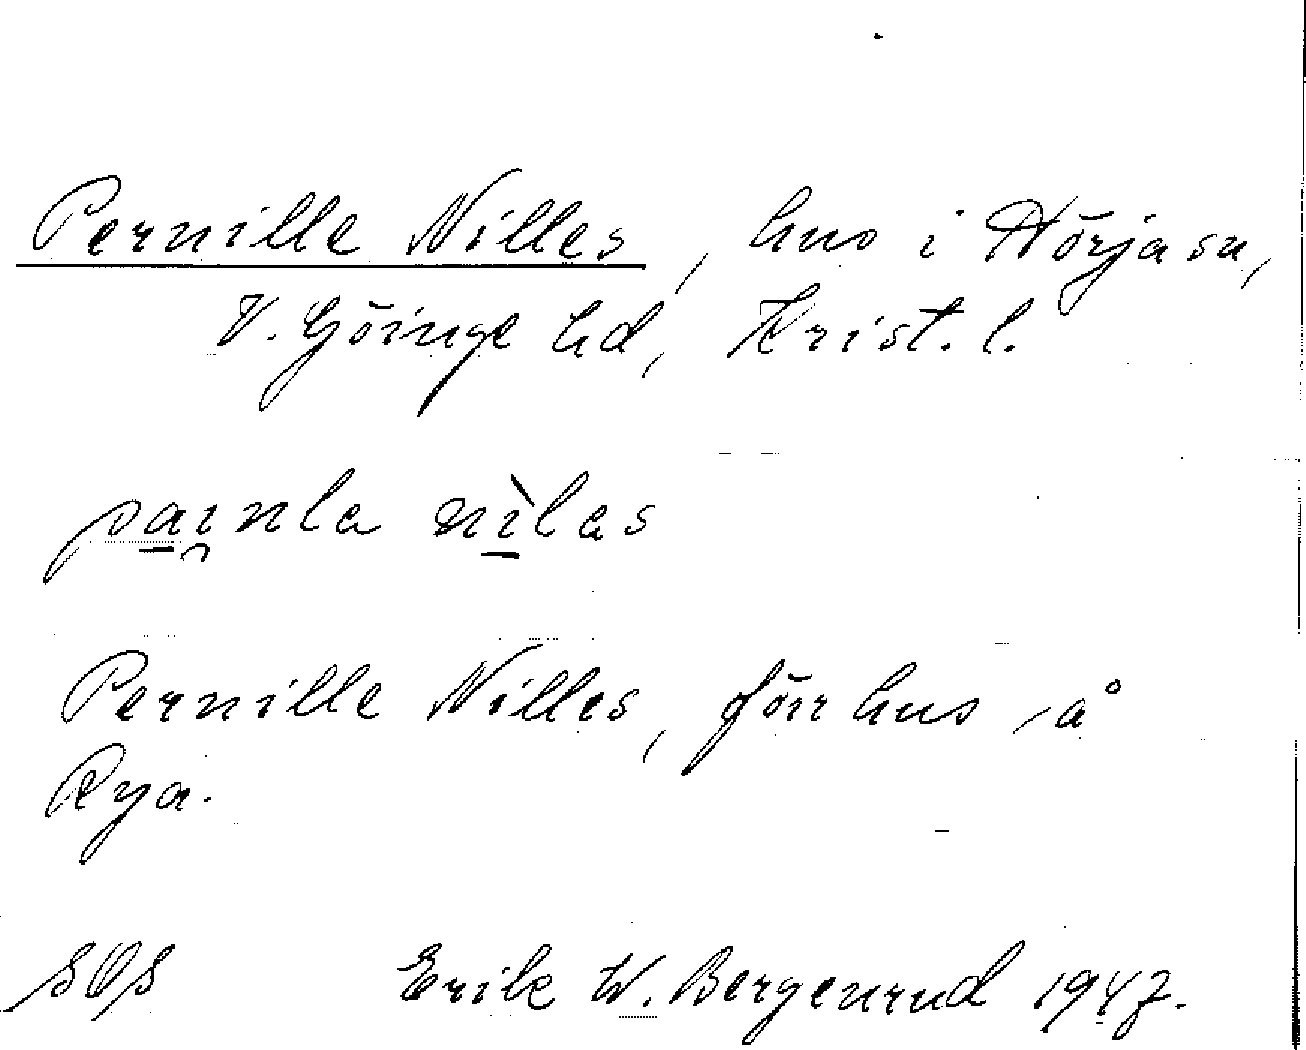 Pernille Nilles, hus i Hörjasn,
V. Göinge hd, Krist. l.
pai̯nla nìlas
Pernille Nilles, förr hus å
Rya.
SOS Erik W. Bergenrud 1947.